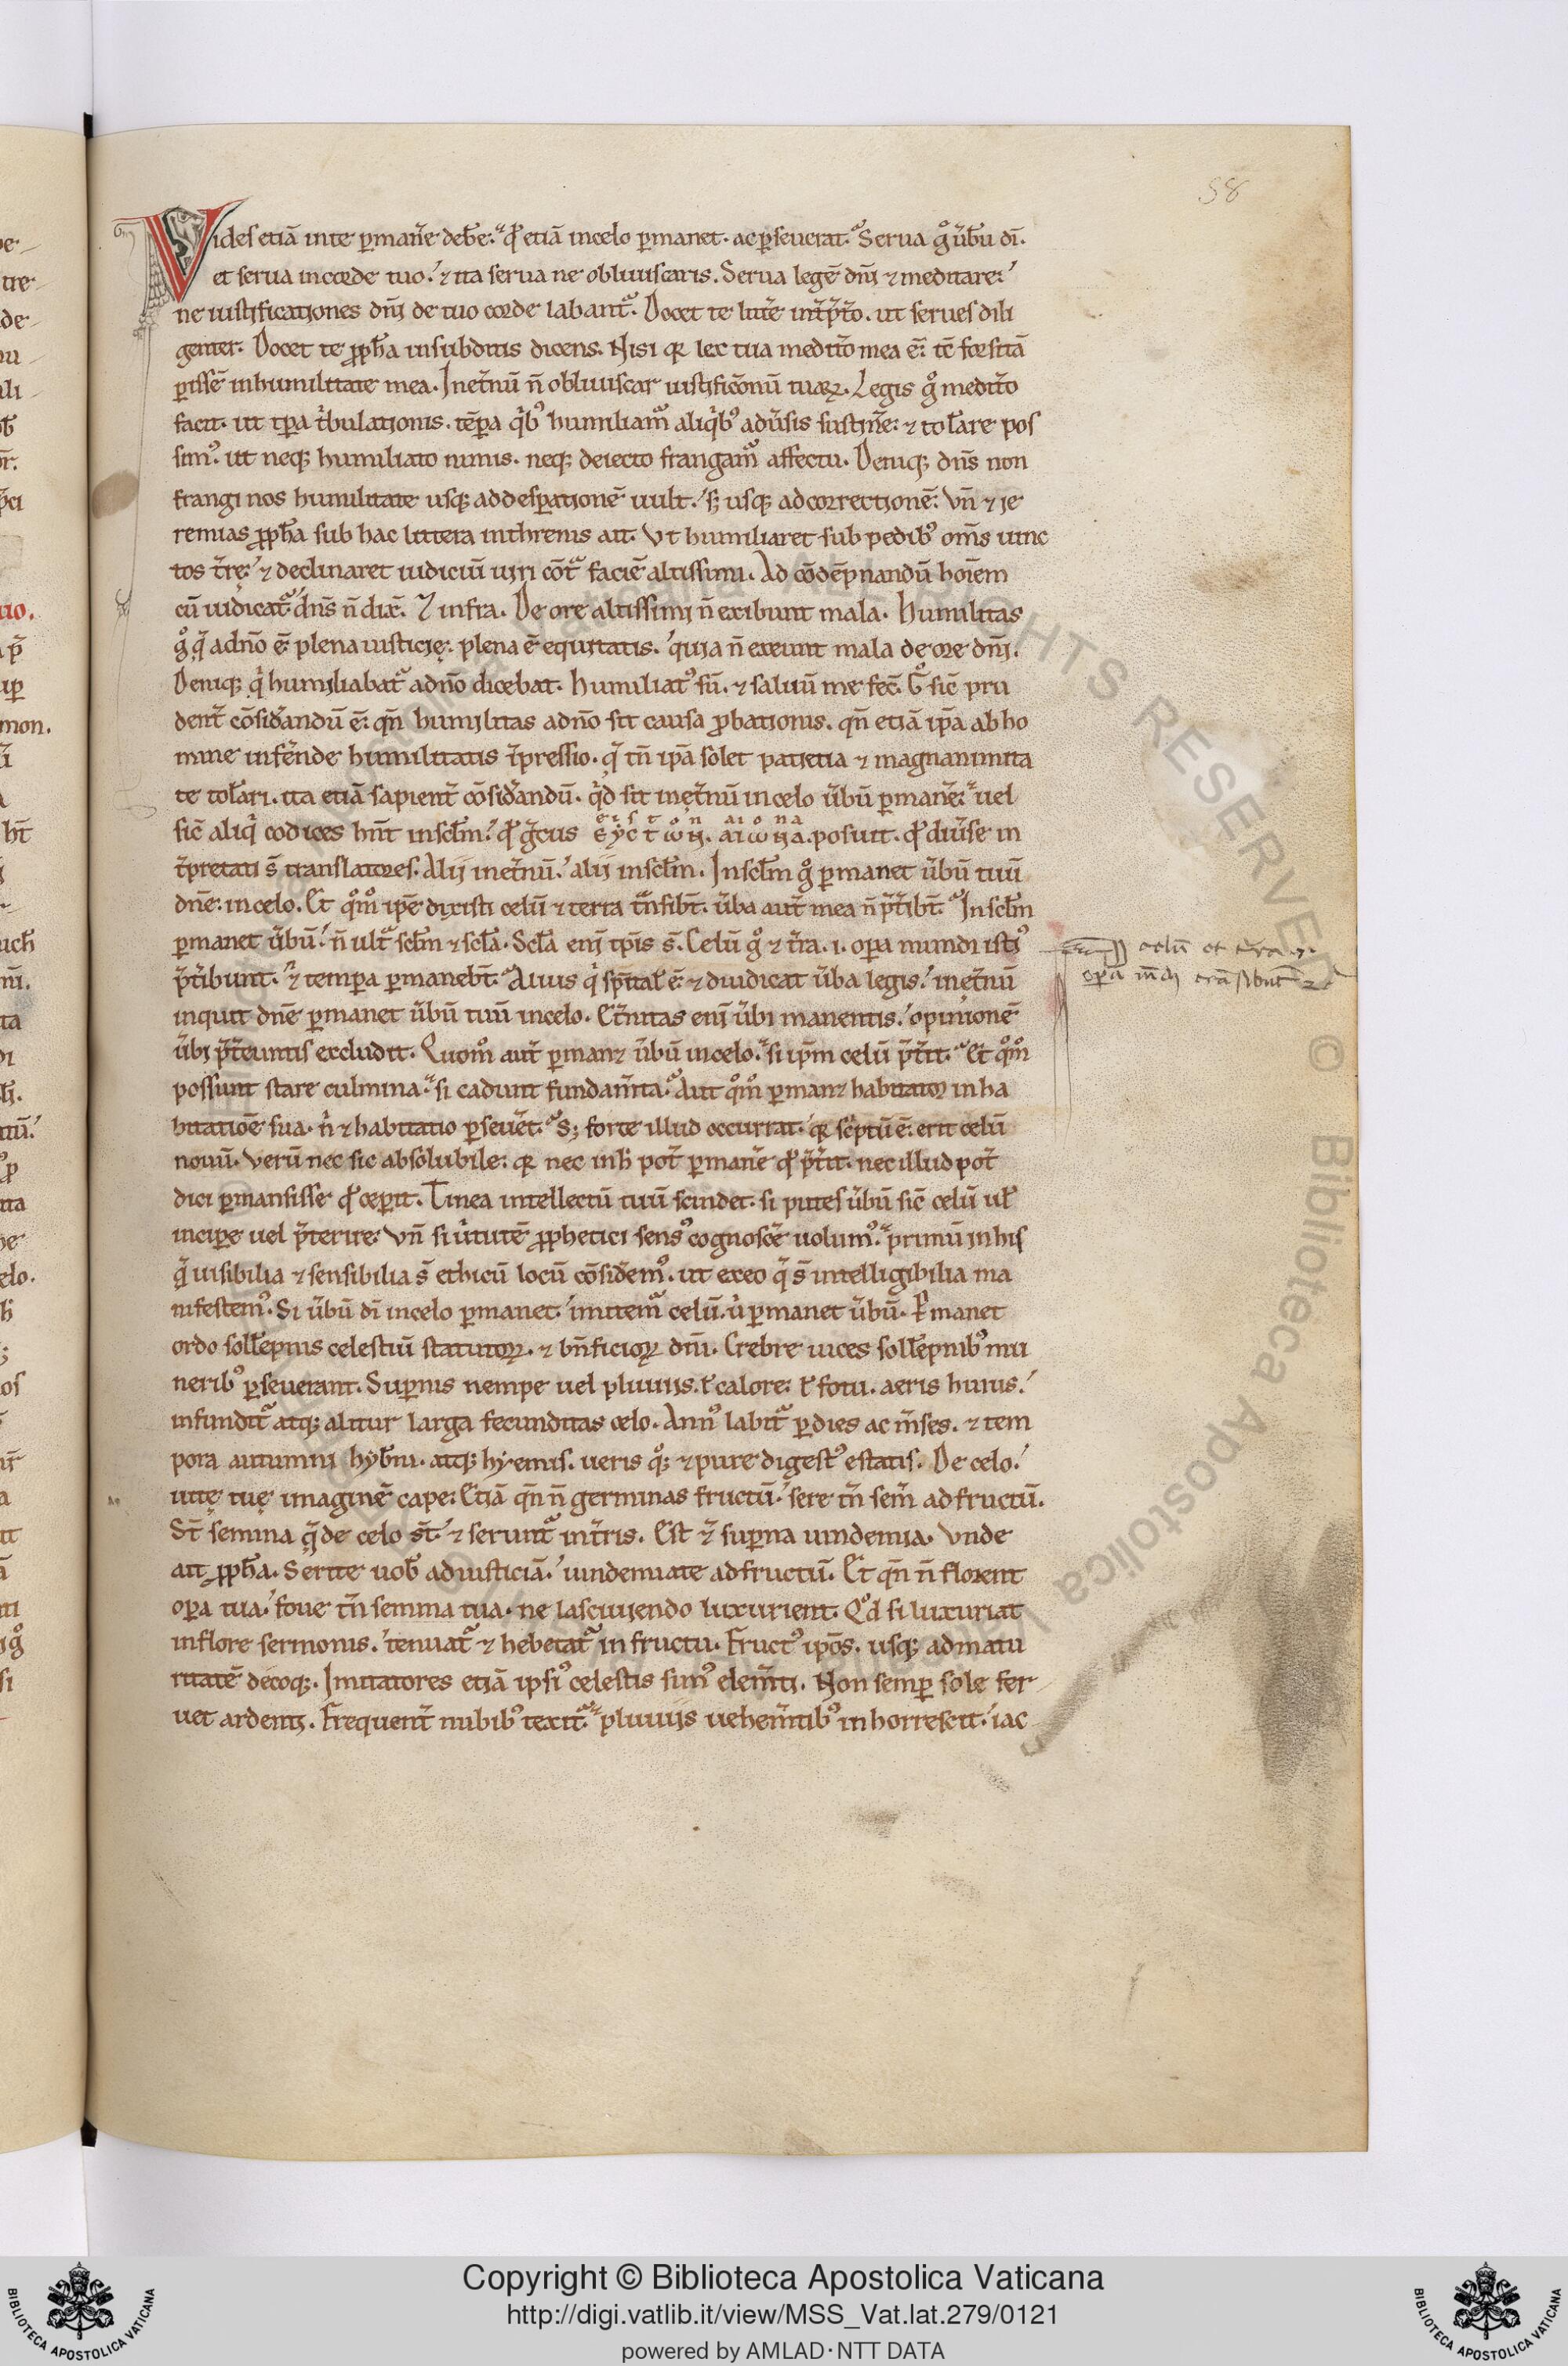 58
Vides etiā inte ꝑmaňe debe᷎. qđ etiā incelo ꝑmanet. ac ꝑseuerat. Serua gͦ ūbū dī.
et serua incorde tuo. ⁊ ita serua ne obliuiscaris. Serua legē dn̄i ⁊ meditare.
ne iustificationes dn̄i de tuo corde labant᷑. Docet te litt̄e int̄p̄t̄o. ut serues dili
genter. Docet te ꝓph̄a insubditis dicens. Nisi qꝛ lex tua medit̄o mea ē. t̄c forsitā
ꝑissē inhumilitate mea. Inet̄nū n̄ obliuiscar iustific̄onū tuaꝝ. Legis gͦ medit̄o
facit. ut tꝑa tⁱbulationis. tēꝑa qⁱbꝰ humiliamꝰ aliqⁱbꝰ adūsis sustin̄e. ⁊ tol̄are pos
simꝰ. ut neqꝫ humiliato nimis. neqꝫ deiecto frangamꝰ affectu. Deniqꝫ dn̄s non
frangi nos humilitate usqꝫ addesꝑationē uult. sꝫ usqꝫ adcorrectionē. Vn̄ ⁊ ie
remias ꝓph̄a sub hac littera inthrenis ait. Vt humiliaret sub pedibꝰ om̄s uinc
tos t̄rę. ⁊ declinaret iudiciū uiri cōt᷑ faciē altissimi. Ad cōdēpnandū hoīem
cū iudicat᷑ dn̄s n̄ dix̄. ⁊ infra. De ore altissimi n̄ exibunt mala. Humilitas
gͦ q̄ adn̄o ē plena iusticię. plena ē equitatis. quia n̄ exeunt mala de ore dn̄i.
Deniqꝫ qⁱ humiliabat᷑ adn̄o dicebat. Humiliatꝰ sū. ⁊ saluū me fec̄. Gͦ sic̄ pru
dent̄ cōsid̄andū ē. qn̄ humilitas adn̄o sit causa ꝓbationis. qn̄ etiā ip̄a ab ho
mine infer̄nde humilitatis īpressio. q̄ tn̄ ip̄a solet patiētia ⁊ magnanimita
te tol̄ari. ita etiā sapient̄ cōsid̄andū. qⁱd sit inęt̄nū incelo ūbū ꝑman̄e. uel
sic̄ aliqⁱ codices hn̄t insclm̄. qđ gͣcus ειϲ τὸν αιωνα. posuit. qđ diūse in
t̄pretati s̄ translatores. Alij inet̄nū. alij insclm̄. Insclm̄ gͦ ꝑmanet ūbū tuū
dn̄e incelo. Et qͦmͦ ipē dixisti celū ⁊ terra t̄nsibt̄. ūba aut̄ mea n̄ p̄t̄ibt̄. Insclm̄
ꝑmanet ūbū. n̄ ult᷑ sclm̄ ⁊ scl̄a. Scl̄a enī tp̄is s̄. Celū gͦ ⁊ t̄ra. i. oꝑa mundi istiꝰ
p̄t̄ibunt. ⁊ tempa ꝑmaneb̄t. Aiuis qⁱ sp̄ital̄ ē. ⁊ diuidicat ūba legis. inęt̄nū
inquit dn̄e ꝑmanet ūbū tuū incelo. Et̄nitas enī ūbi manentis. opinionē
ūbi p̄t̄euntis excludit. Quomͦ aut̄ ꝑmanꝫ ūbū incelo. si ip̄m celū p̄t̄it. Et qͦmͦ
possunt stare culmina. si cadunt fundam̄ta. Aut qͦmͦ ꝑmanꝫ habitator in ha
bitatiōe sua. nⁱ ⁊ habitatio ꝑseuēt. Sꝫ forte illud occurrat. qꝛ scⁱptū ē. erit celū
nouū. Verū nec sic absolubile. qꝛ nec inh̄ pot̄ ꝑman̄e qđ p̄t̄it. nec illud pot̄
dici ꝑmansisse qđ cepit. Tinea intellectū tuū scindet. si putes ūbū sic̄ celū ul̄
inciꝑe uel p̄terire. Vn̄ si uⁱtutē ꝓphetici sensꝰ cognosc̄e uolumꝰ. primū in his
q̄ uisibilia ⁊ sensibilia s̄ ethicū locū cōsid̄emꝰ. ut exeo q̄ s̄ intelligibilia ma
nifestemꝰ. Si ūbū dī incelo ꝑmanet. imitem᷑ celū. uⁱ ꝑmanet ūbū. Ꝑmanet
ordo soll̄epnis celestiū statutoꝝ. ⁊ bn̄ficioꝝ dn̄i. Crebre uices soll̄epnibꝰ mu
neribꝰ ꝑseuerant. Suꝑnis nempe uel pluuiis. ł calore. ł fotu. aeris huius.
infundit᷑ atqꝫ alitur larga fecunditas celo. Annꝰ labit᷑ ꝑ dies ac m̄ses. ⁊ tem
pora autumni hyb̄ni. atqꝫ hyemis. ueris qͦꝫ ⁊ pure digestꝰ estatis. De celo.
uite tuę imaginē cape. Etiā qn̄ n̄ germinas fructū. sere tn̄ sem̄ ad fructū.
St̄ semina q̄ de celo st̄. ⁊ serunt᷑ int̄ris. Est ⁊ suꝑna uindemia. Vnde
ait ꝓph̄a. Serite uob̄ adiusticiā. uindemiate adfructū. Et qn̄ n̄ florent
oꝑa tua. foue tn̄ semina tua. ne lasciuiendo luxurient. Qđ si luxuriat
inflore sermonis. tenuat᷑ ⁊ hebetat᷑ in fructu. Fructꝰ ip̄os. usqꝫ admatu
ritatē decoqꝫ. Imitatores etiā ipsiꝰ celestis simꝰ elem̄ti. Non semꝑ sole fer
uet ardenti. Frequent̄ nubibꝰ texit᷑. pluuiis uehem̄tibꝰ inhorrescit. iac
celū et t̄ra .i.
oꝑa m̄di trāsibūt
Copyright © Biblioteca Apostolica Vaticana
http://digi.vatlib.it/view/MSS_Vat.lat.279/0121
powered by AMLAD·NTT DATA
BIBLIOTECA APOSTOLICA VATICANA
BIBLIOTECA APOSTOLICA VATICANA